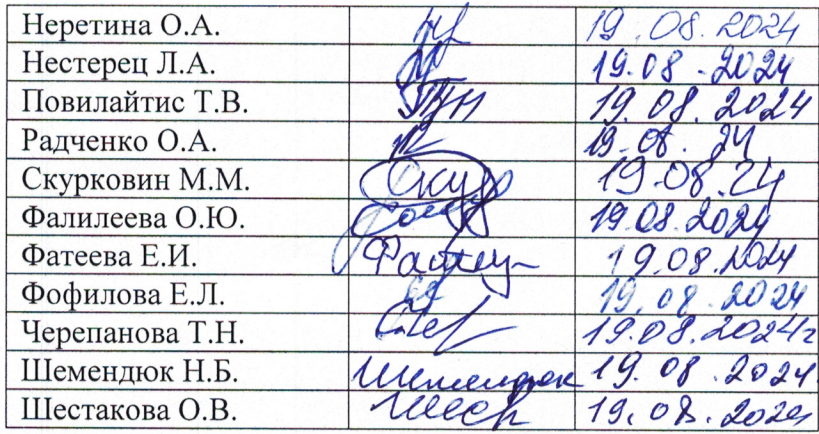 Неретина О.А. 19.08.2024
Нестерец Л.А. 19.08.2024
Повилайтис Т.В. 19.08.2024
Радченко О.А. 19.08.24
Скурковин М.М. 19.08.24
Фалилеева О.Ю. 19.08.2024
Фатеева Е.И. 19.08.2024
Фофилова Е.Л. 19.08.2024
Черепанова Т.Н. 19.08.2024г
Шемендюк Н.Б. Шемендюк 19.08.2024
Шестакова О.В. 19.08.2024